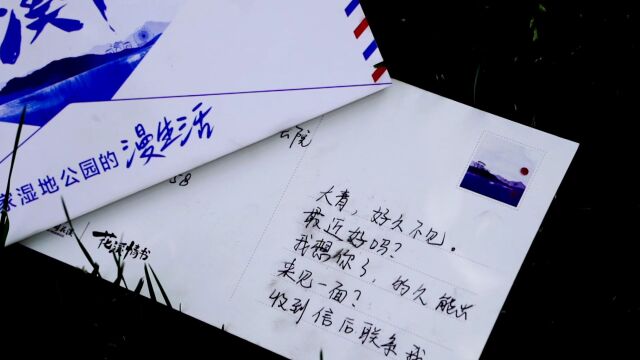 溪
家湿地公园的漫生活
云院
58
花溪情书
大青，好久不见。
最近好吗？
我想你了，的久能出
来见一面？
收到信后联系我